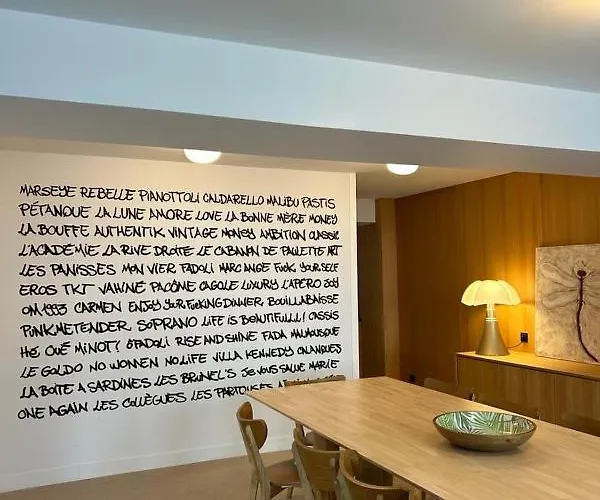 MARSEYE REBELLE PIANOTTOLI CALDARELLO MALIBU PASTIS
PÉTANQUE LA LUNE AMORE LOVE LA BONNE MÈRE MONEY
LA BOUFFE AUTHENTIK VINTAGE MONEY AMBITION CLASSIC
L'ACADÉMIE LA RIVE DROITE LE CABANON DE PAULETTE ART
LES PANISSES MON VIER FADOLI MARC ANGE FUCK YOURSELF
EROS TKT VAÏNÉ PACÔME CAGOLE LUXURY L'APERO JOJI
OM 1993 CARMEN ENJOY YOUR FUCKING DINNER, BOUILLABAISSE
PUNKMETENDER. SOPRANO LIFE IS BEAUTIFULLL! CASSIS
HÉ, OUÉ MINOT! OFADOLI RISE AND SHINE FADA MALMOUSQUE
LE GOLDO NO WOMEN NO LIFE VILLA KENNEDY CALANQUES
LA BOÎTE A SARDINES LES BRUNEL'S JE VOUS SALUE MARIE
ONE AGAIN LES COLLÈGUES LES PARTOUSES